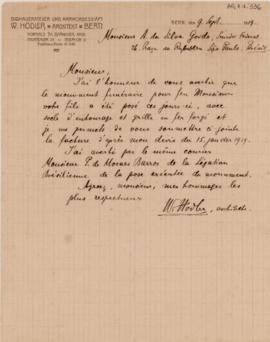 BILDHAUERATELIER UND MARMORGESCHÄFT
W. HODLER ARCHITEKT BERN
BERN, den 9 Sept. 1919.
Monsieur A. da Silva Gordo,
São Paulo, Brésil
Monsieur,
J'ai l'honneur de vous avertir que
le monument funéraire pour feu Monsieur
votre fils a été posé ces jours-ci, avec
socle d'entourage et grille en fer forgé et
je me permets de vous soumettre ci-jointe
la facture d'après mon devis du 15 janvier 1919.
J'ai averti par le même courrier
Monsieur P. de Moraes Barros de la Légation
Brésilienne de la pose exécutée du monument.
Agréez, monsieur, mes hommages les
plus respectueux
W. Hodler, architecte.